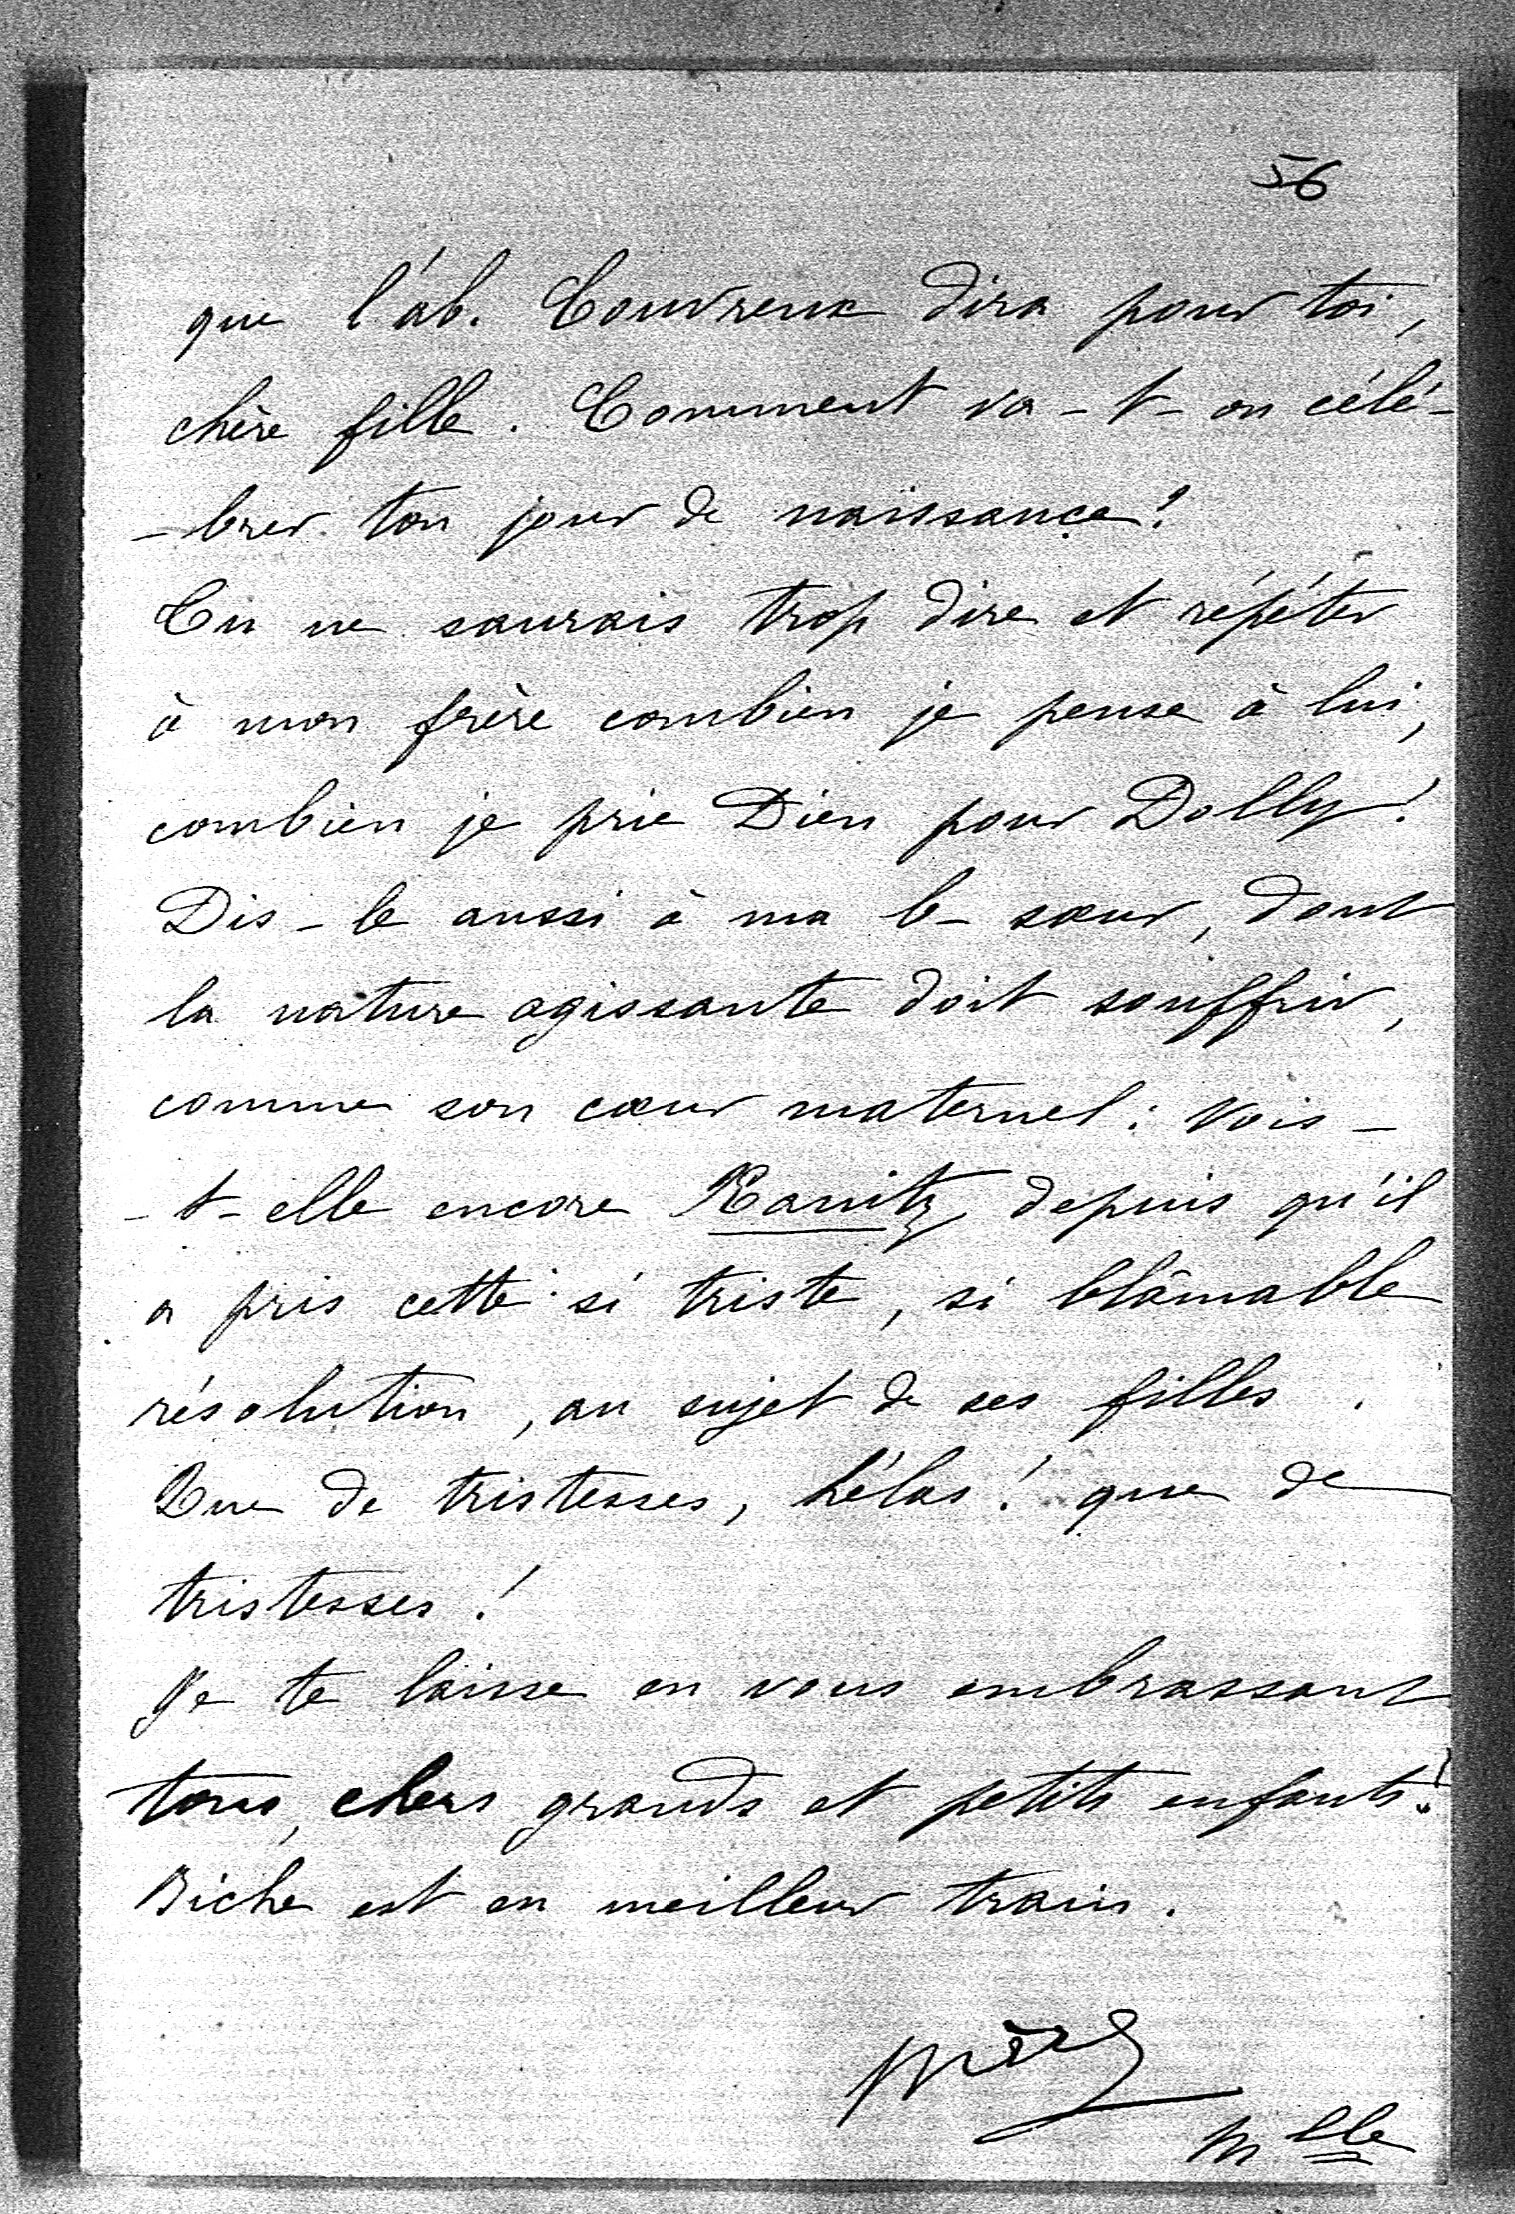 56
que l'ab. Couvreux dira pour toi,
chère fille. Comment va-t-on célé-
-brer ton jour de naissance?
Tu ne saurais trop dire et répéter
à mon frère combien je pense à lui,
combien je prie Dieu pour Dolly!
Dis-le aussi à ma b- sœur, dont
la nature agissante doit souffrir,
comme son cœur maternel: Vois-
-t-elle encore Kanitz, depuis qu'il
a pris cette si triste, si blâmable
résolution, au sujet de ses filles.
Que de tristesses, hélas! que de
tristesses!
Je te laisse en vous embrassant
tous, chers grands et petits enfants!
Biche est en meilleur train.
Mère
Mlle